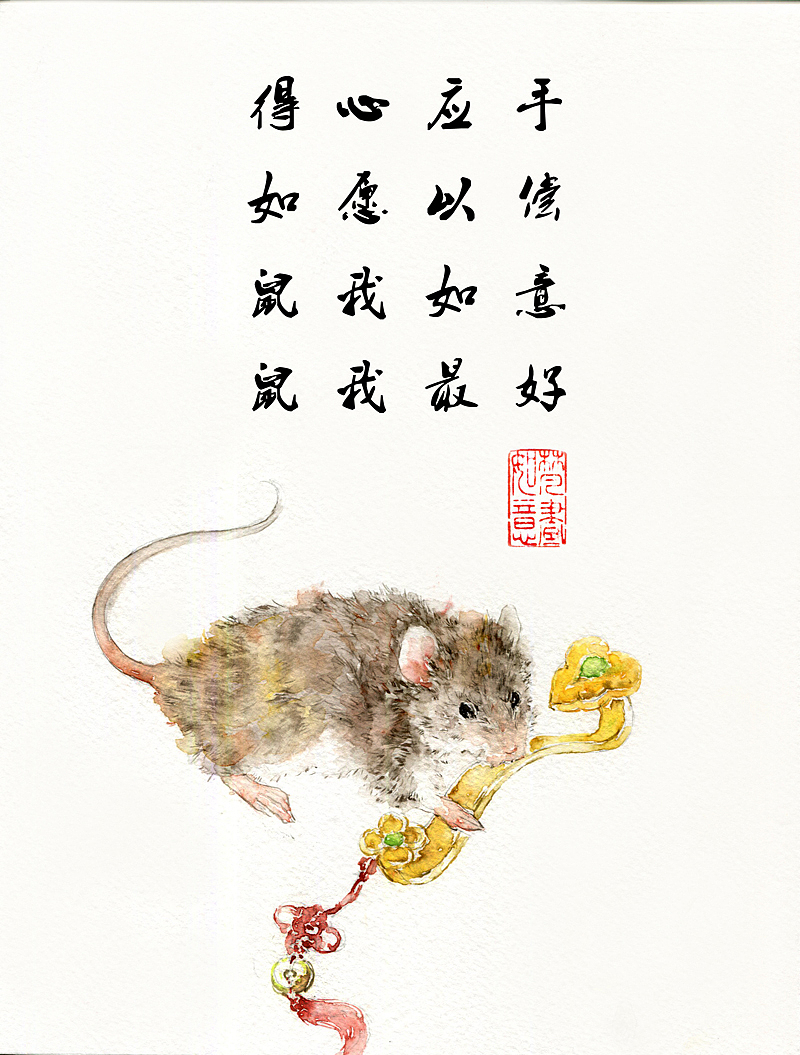 得心应手
如愿以偿
鼠我如意
鼠我最好